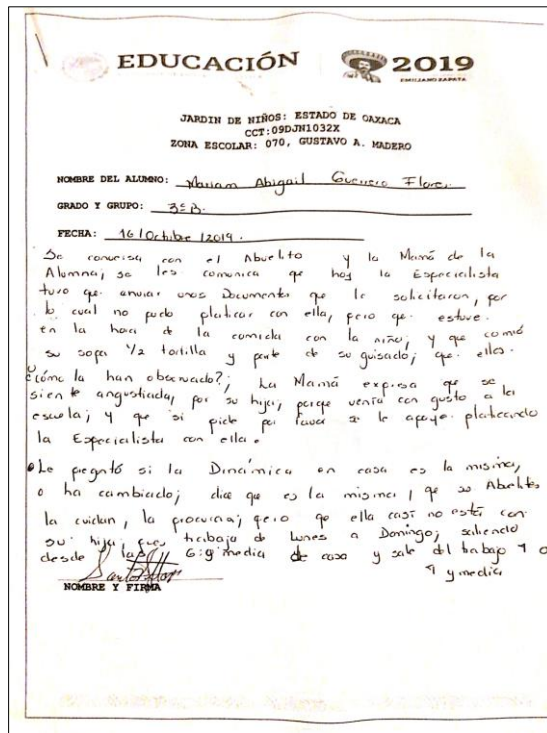 EDUCACIÓN
2019
EMILIANO ZAPATA
JARDIN DE NIÑOS: ESTADO DE OAXACA
CCT:09DJN1032X
ZONA ESCOLAR: 070, GUSTAVO A. MADERO
NOMBRE DEL ALUMNO: Mariam Abigail Guerrero Flores.
GRADO Y GRUPO: 3º B.
FECHA: 16/Octubre/2019.
Se conversa con el Abuelito y la Mamá de la
Alumna; se les comunica que hoy la Especialista
tuvo que enviar unos Documentos que le solicitaron, por
lo cual no pudo platicar con ella, pero que estuve
en la hora de la comida con la niña; y que comió
su sopa 1/2 tortilla y parte de su guisado; que ellos
¿cómo la han observado?; La Mamá expresa que se
siente angustiada, por su hija; porque venía con gusto a la
escuela; y que si pide por favor se le apoye platicando
la Especialista con ella.
Le pregntó si la Dinámica en casa es la misma,
o ha cambiado; dice que es la misma, que sus Abuelitos
la cuidan, la procuran; pero que ella casi no está con
su hija; pues trabaja de Lunes a Domingo; saliendo
desde las 6: y media de casa y sale del trabajo 9 o
9 y media
NOMBRE Y FIRMA